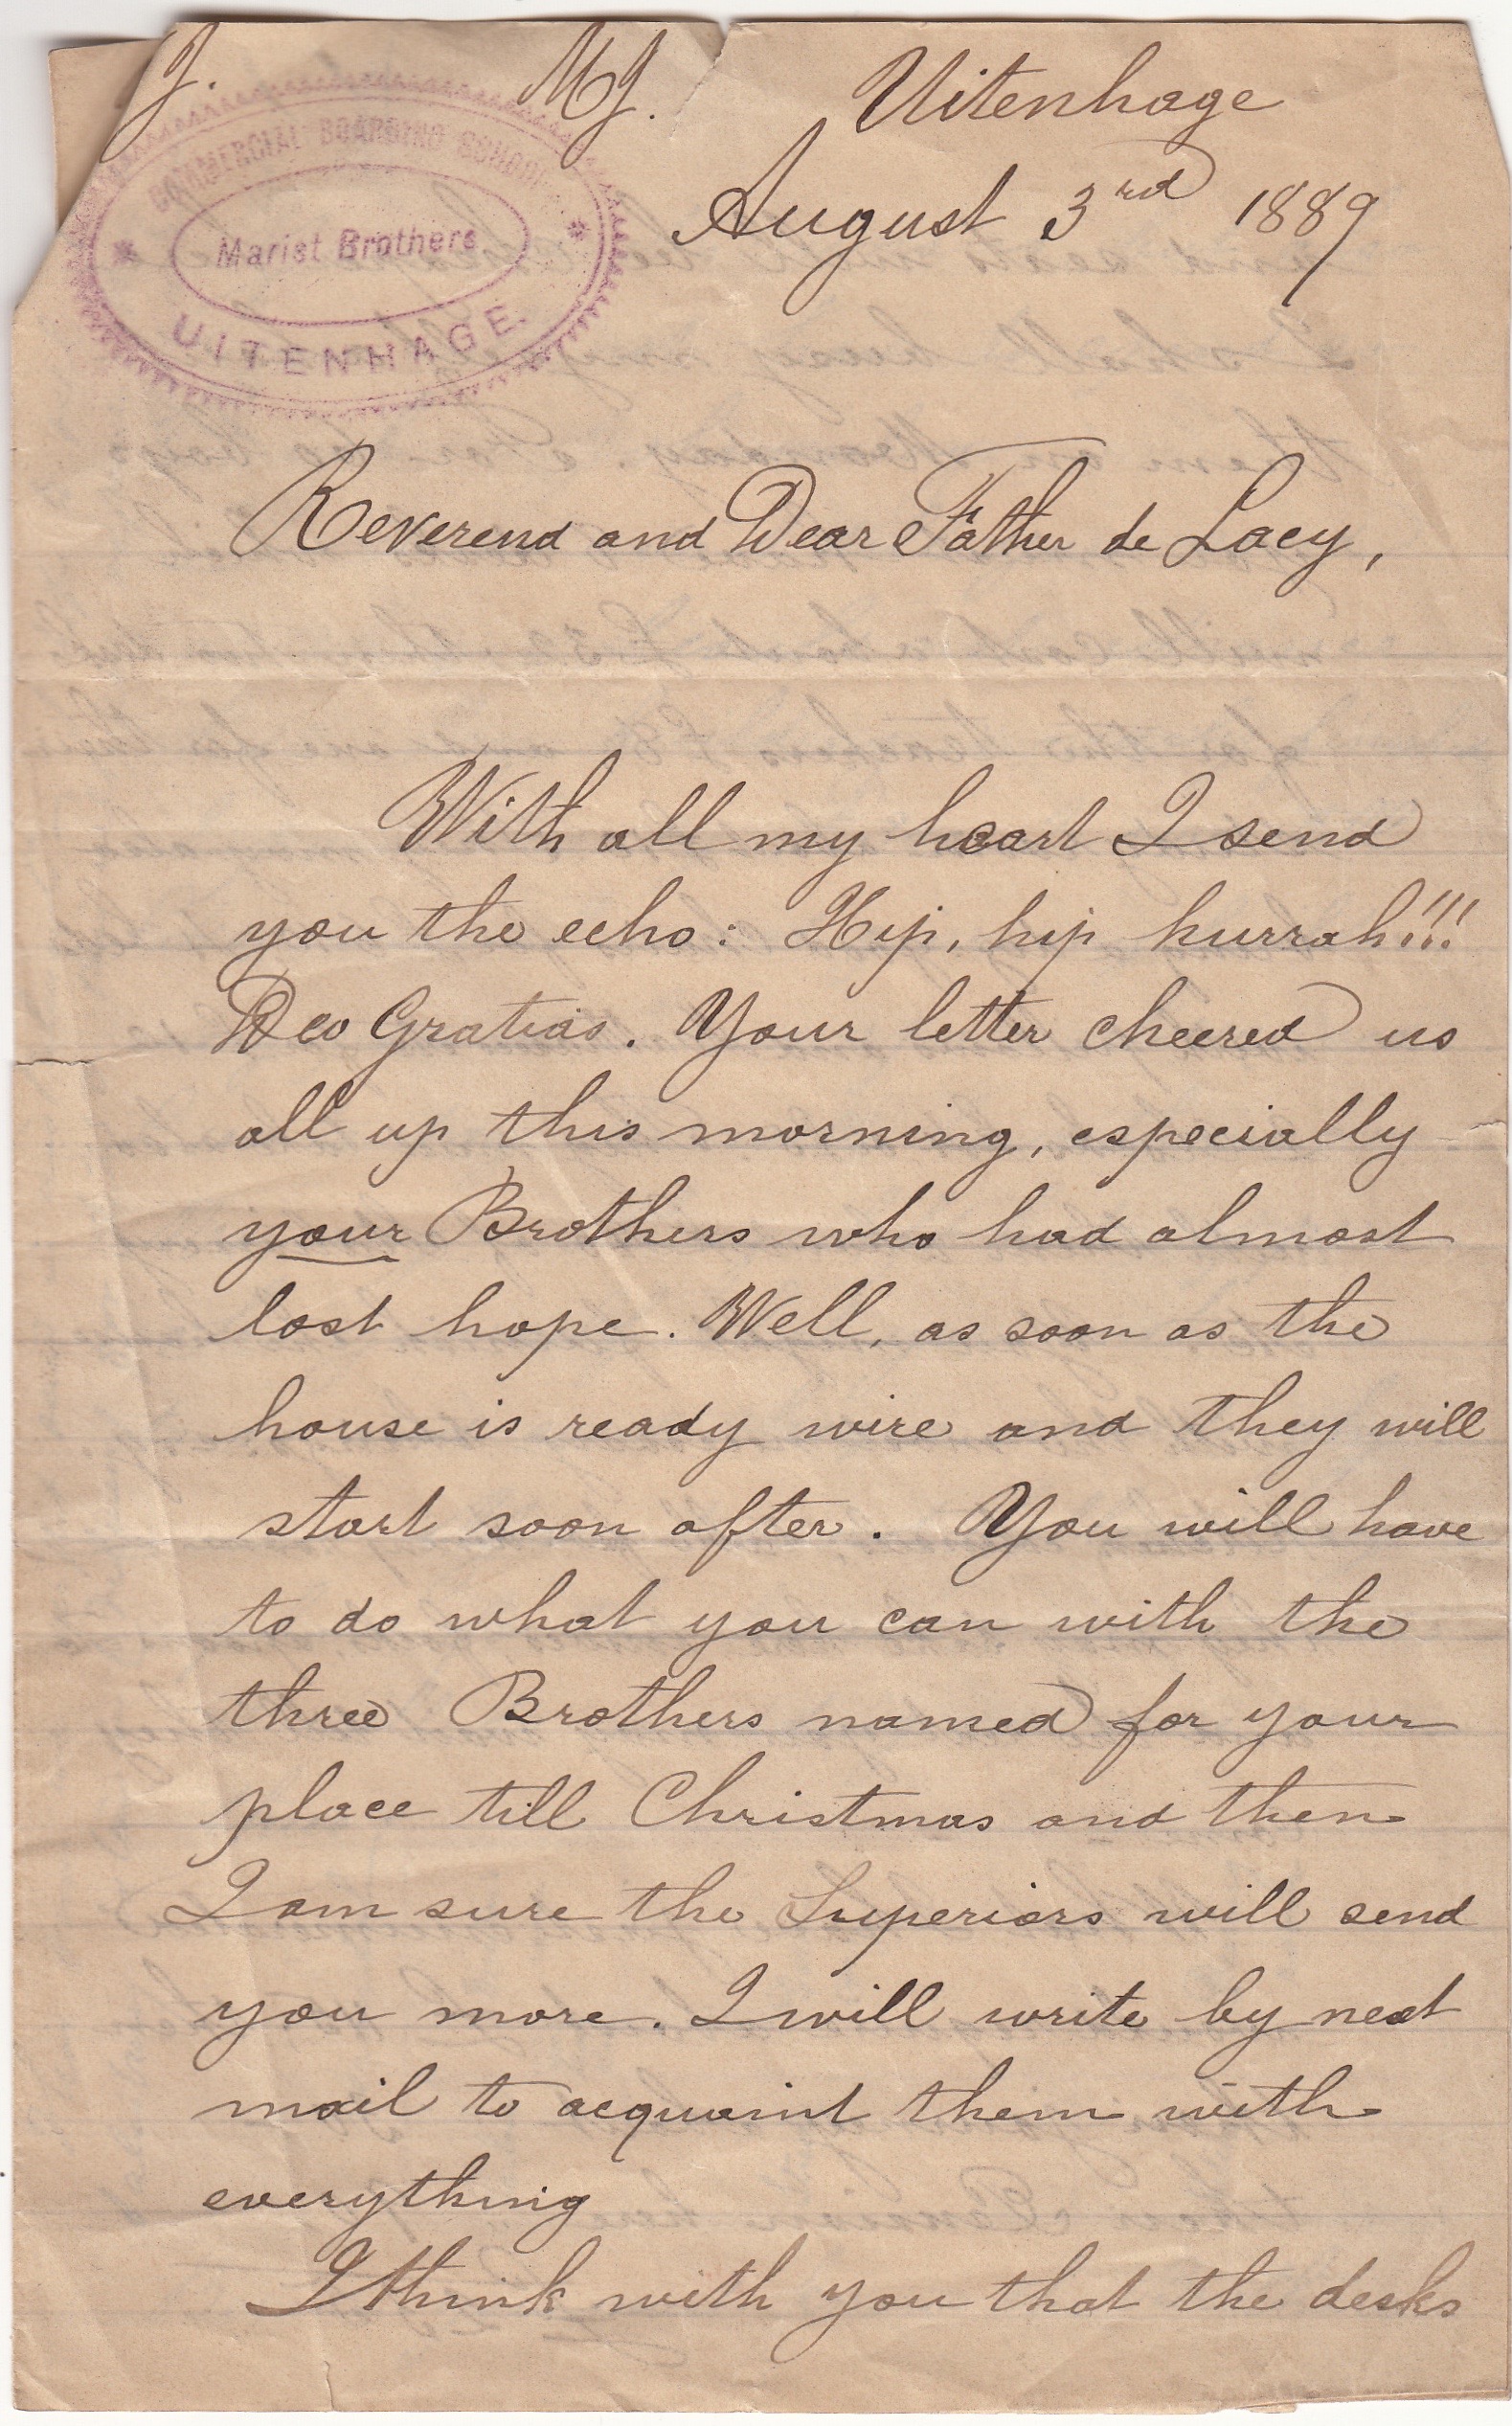 J. MJ. Uitenhage
August 3rd 1889
COMMERCIAL BOARDING SCHOOL
Marist Brothers
UITENHAGE
Reverend and Dear Father de Lacy,
With all my heart I send
you the echo: Hip, hip hurrah!!!
Deo Gratias. Your letter cheered us
all up this morning, especially
your Brothers who had almost
lost hope. Well, as soon as the
house is ready wire and they will
start soon after. You will have
to do what you can with the
three Brothers named for your
place till Christmas and then
I am sure the Superiors will send
you more. I will write by next
mail to acquaint them with
everything
I think with you that the desks